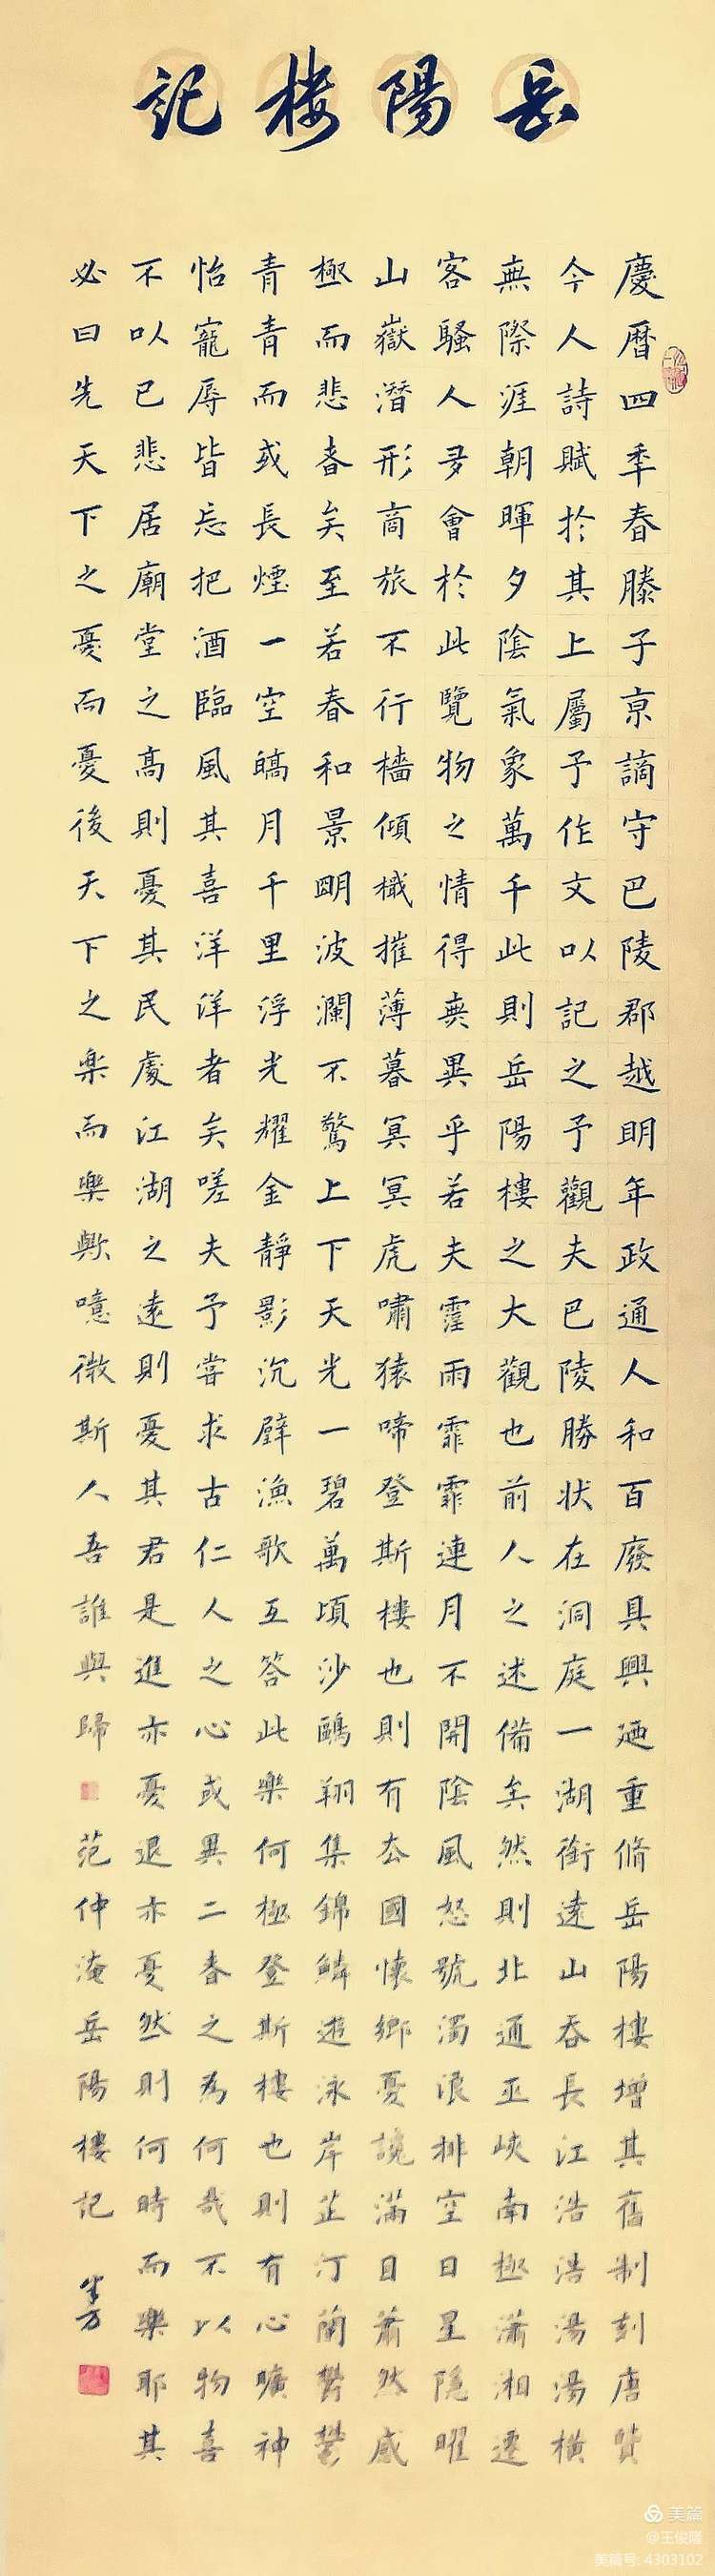 岳陽楼記
慶曆四年春滕子京謫守巴陵郡越明年政通人和百廢具興廼重脩岳陽樓增其舊制刻唐賢
今人詩賦於其上屬予作文以記之予觀夫巴陵勝状在洞庭一湖銜遠山吞長江浩浩湯湯橫
無際涯朝暉夕陰氣象萬千此則岳陽樓之大觀也前人之述備矣然則北通巫峽南極瀟湘遷
客騷人多會於此覽物之情得無異乎若夫霪雨霏霏連月不開陰風怒號濁浪排空日星隱曜
山嶽潛形商旅不行檣傾檝摧薄暮冥冥虎嘯猿啼登斯樓也則有去國懷鄉憂讒滿目蕭然感
極而悲者矣至若春和景明波瀾不驚上下天光一碧萬頃沙鷗翔集錦鱗遊泳岸芷汀蘭鬱鬱
青青而或長煙一空皜月千里浮光耀金靜影沉璧漁歌互答此樂何極登斯樓也則有心曠神
怡寵辱皆忘把酒臨風其喜洋洋者矣嗟夫予嘗求古仁人之心或異二者之為何哉不以物喜
不以已悲居廟堂之高則憂其民處江湖之遠則憂其君是進亦憂退亦憂然則何時而樂耶其
必曰先天下之憂而憂後天下之樂而樂歟噫微斯人吾誰與歸
范仲淹岳陽樓記
美篇
@王俊隆
美篇号: 4303102